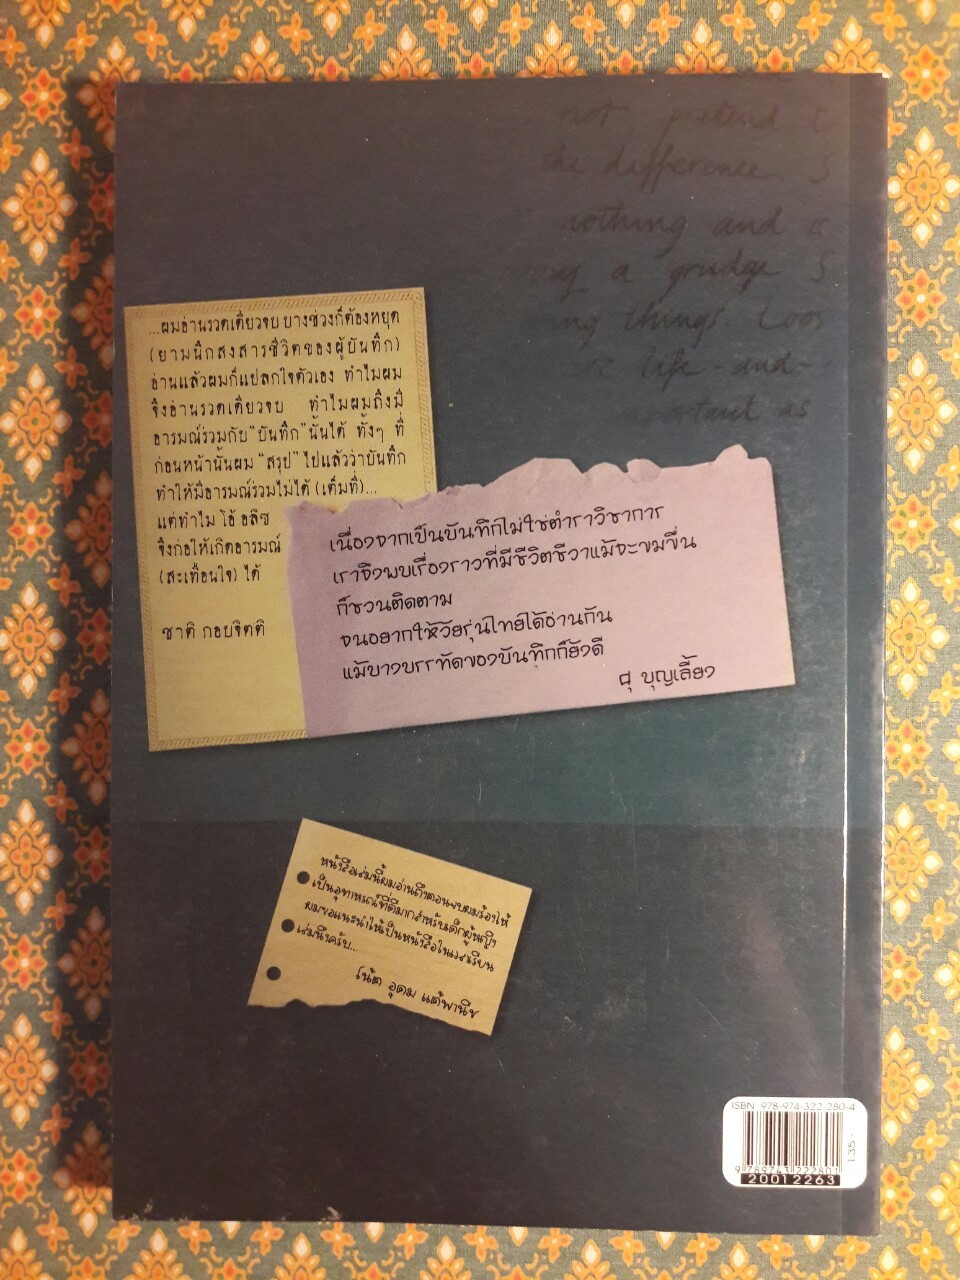 not pretend
the difference. S
nothing and is
a grudge S
things. Loos
life - and -
as
...ผมอ่านรวดเดียวจบ บางช่วงก็ต้องหยุด
(ยามนึกสงสารชีวิตของผู้บันทึก)
อ่านแล้วผมก็แปลกใจตัวเอง ทำไมผม
จึงอ่านรวดเดียวจบ ทำไมผมถึงมี
อารมณ์ร่วมกับ "บันทึก" นั้นได้ ทั้งๆ ที่
ก่อนหน้านั้นผม "สรุป" ไปแล้วว่าบันทึก
ทำให้มีอารมณ์ร่วมไม่ได้ (เต็มที่)...
แต่ทำไม โอ้ อลิซ
จึงก่อให้เกิดอารมณ์
(สะเทือนใจ) ได้
ชาติ กอบจิตติ
เนื่องจากเป็นบันทึกไม่ใช่ตำราวิชาการ
เราจึงพบเรื่องราวที่มีชีวิตชีวาแม้จะขมขื่น
ก็ชวนติดตาม
จนอยากให้วัยรุ่นไทยได้อ่านกัน
แม้บางบรรทัดของบันทึกก็ยังดี
ศุ บุญเลี้ยง
หนังสือเล่มนี้ผมอ่านถึงตอนจบผมร้องไห้
เป็นอุทาหรณ์ที่ดีมากสำหรับเด็กผู้หญิง
ผมขอแนะนำให้เป็นหนังสือในโรงเรียน
เล่มนึงครับ...
โน้ต อุดม แต้พานิช
ISBN 978-974-322-280-4
9 789743 222801
135.-
20012263